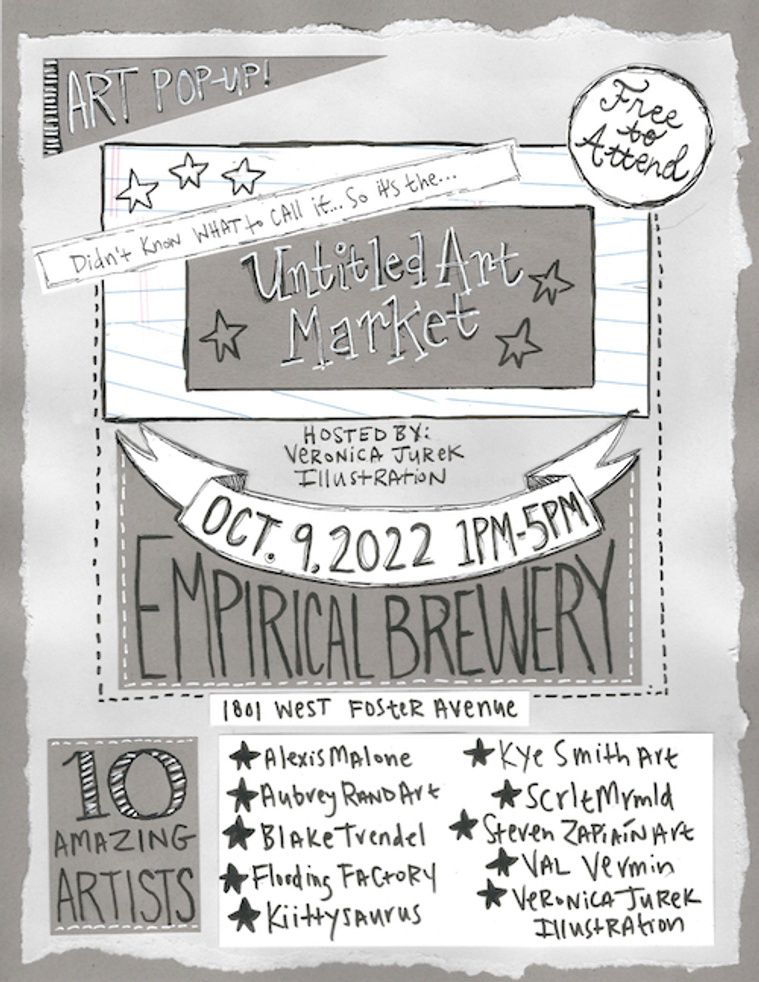 ART POP-UP!
Free
to
Attend
Didn't Know WHAT to CALL it... So it's the...
Untitled Art
Market
HOSTED BY:
VERONICA JUREK
ILLUSTRATION
OCT. 9, 2022 1PM-5PM
EMPIRICAL BREWERY
1801 WEST FOSTER AVENUE
10
AMAZING
ARTISTS
★ Alexis Malone
★ Aubrey RAND Art
★ Blake Trendel
★ Flooding FACTORY
★ Kiittysaurus
★ Kye Smith Art
★ ScrltMrmld
★ Steven ZAPIAÍN Art
★ VAL Vermin
★ VERONICA JUREK
ILLUSTRATION